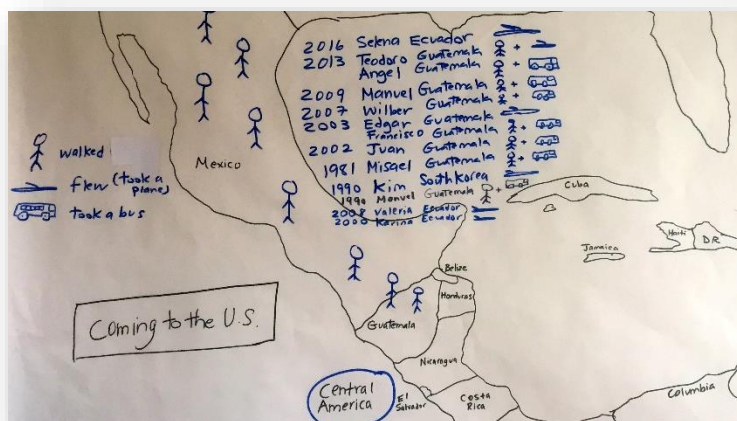 2016 Selena Ecuador
2013 Teodoro Guatemala +
Angel Guatemala +
2009 Manuel Guatemala +
2007 Wilber Guatemala +
2003 Edgar Guatemala
Francisco Guatemala +
2002 Juan Guatemala +
1981 Misael Guatemala +
1990 Kim South Korea
1990 Manuel Guatemala +
2008 Valeria Ecuador
2000 Karina Ecuador
walked
flew (took a
plane)
took a bus
Mexico
Cuba
Haiti
D.R.
Jamaica
Belize
Honduras
Guatemala
Nicaragua
Coming to the U.S.
Central
America
El
Salvador
Costa
Rica
Columbia